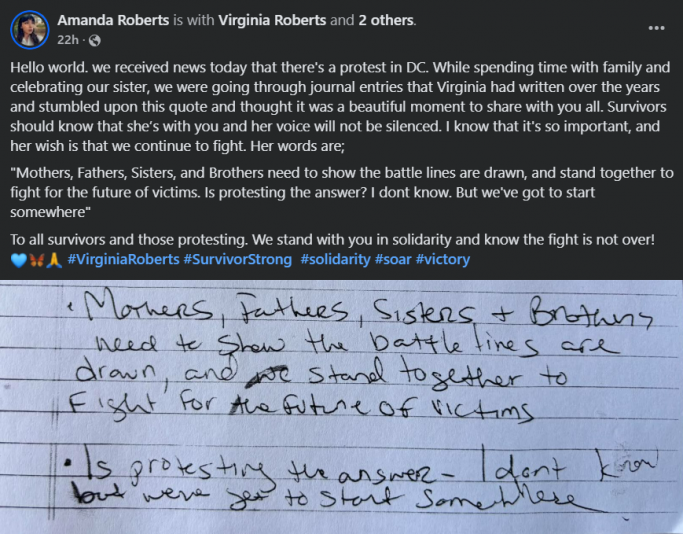 Amanda Roberts is with Virginia Roberts and 2 others.
22h ·
Hello world. we received news today that there's a protest in DC. While spending time with family and
celebrating our sister, we were going through journal entries that Virginia had written over the years
and stumbled upon this quote and thought it was a beautiful moment to share with you all. Survivors
should know that she's with you and her voice will not be silenced. I know that it's so important, and
her wish is that we continue to fight. Her words are;
"Mothers, Fathers, Sisters, and Brothers need to show the battle lines are drawn, and stand together to
fight for the future of victims. Is protesting the answer? I dont know. But we've got to start
somewhere"
To all survivors and those protesting. We stand with you in solidarity and know the fight is not over!
🩵🦋🙏 #VirginiaRoberts #SurvivorStrong #solidarity #soar #victory
· Mothers, Fathers, Sisters + Brothers
need to show the battle lines are
drawn, and stand together to
Fight for the future of victims
· Is protesting the answer - I dont know
but weve got to start somewhere